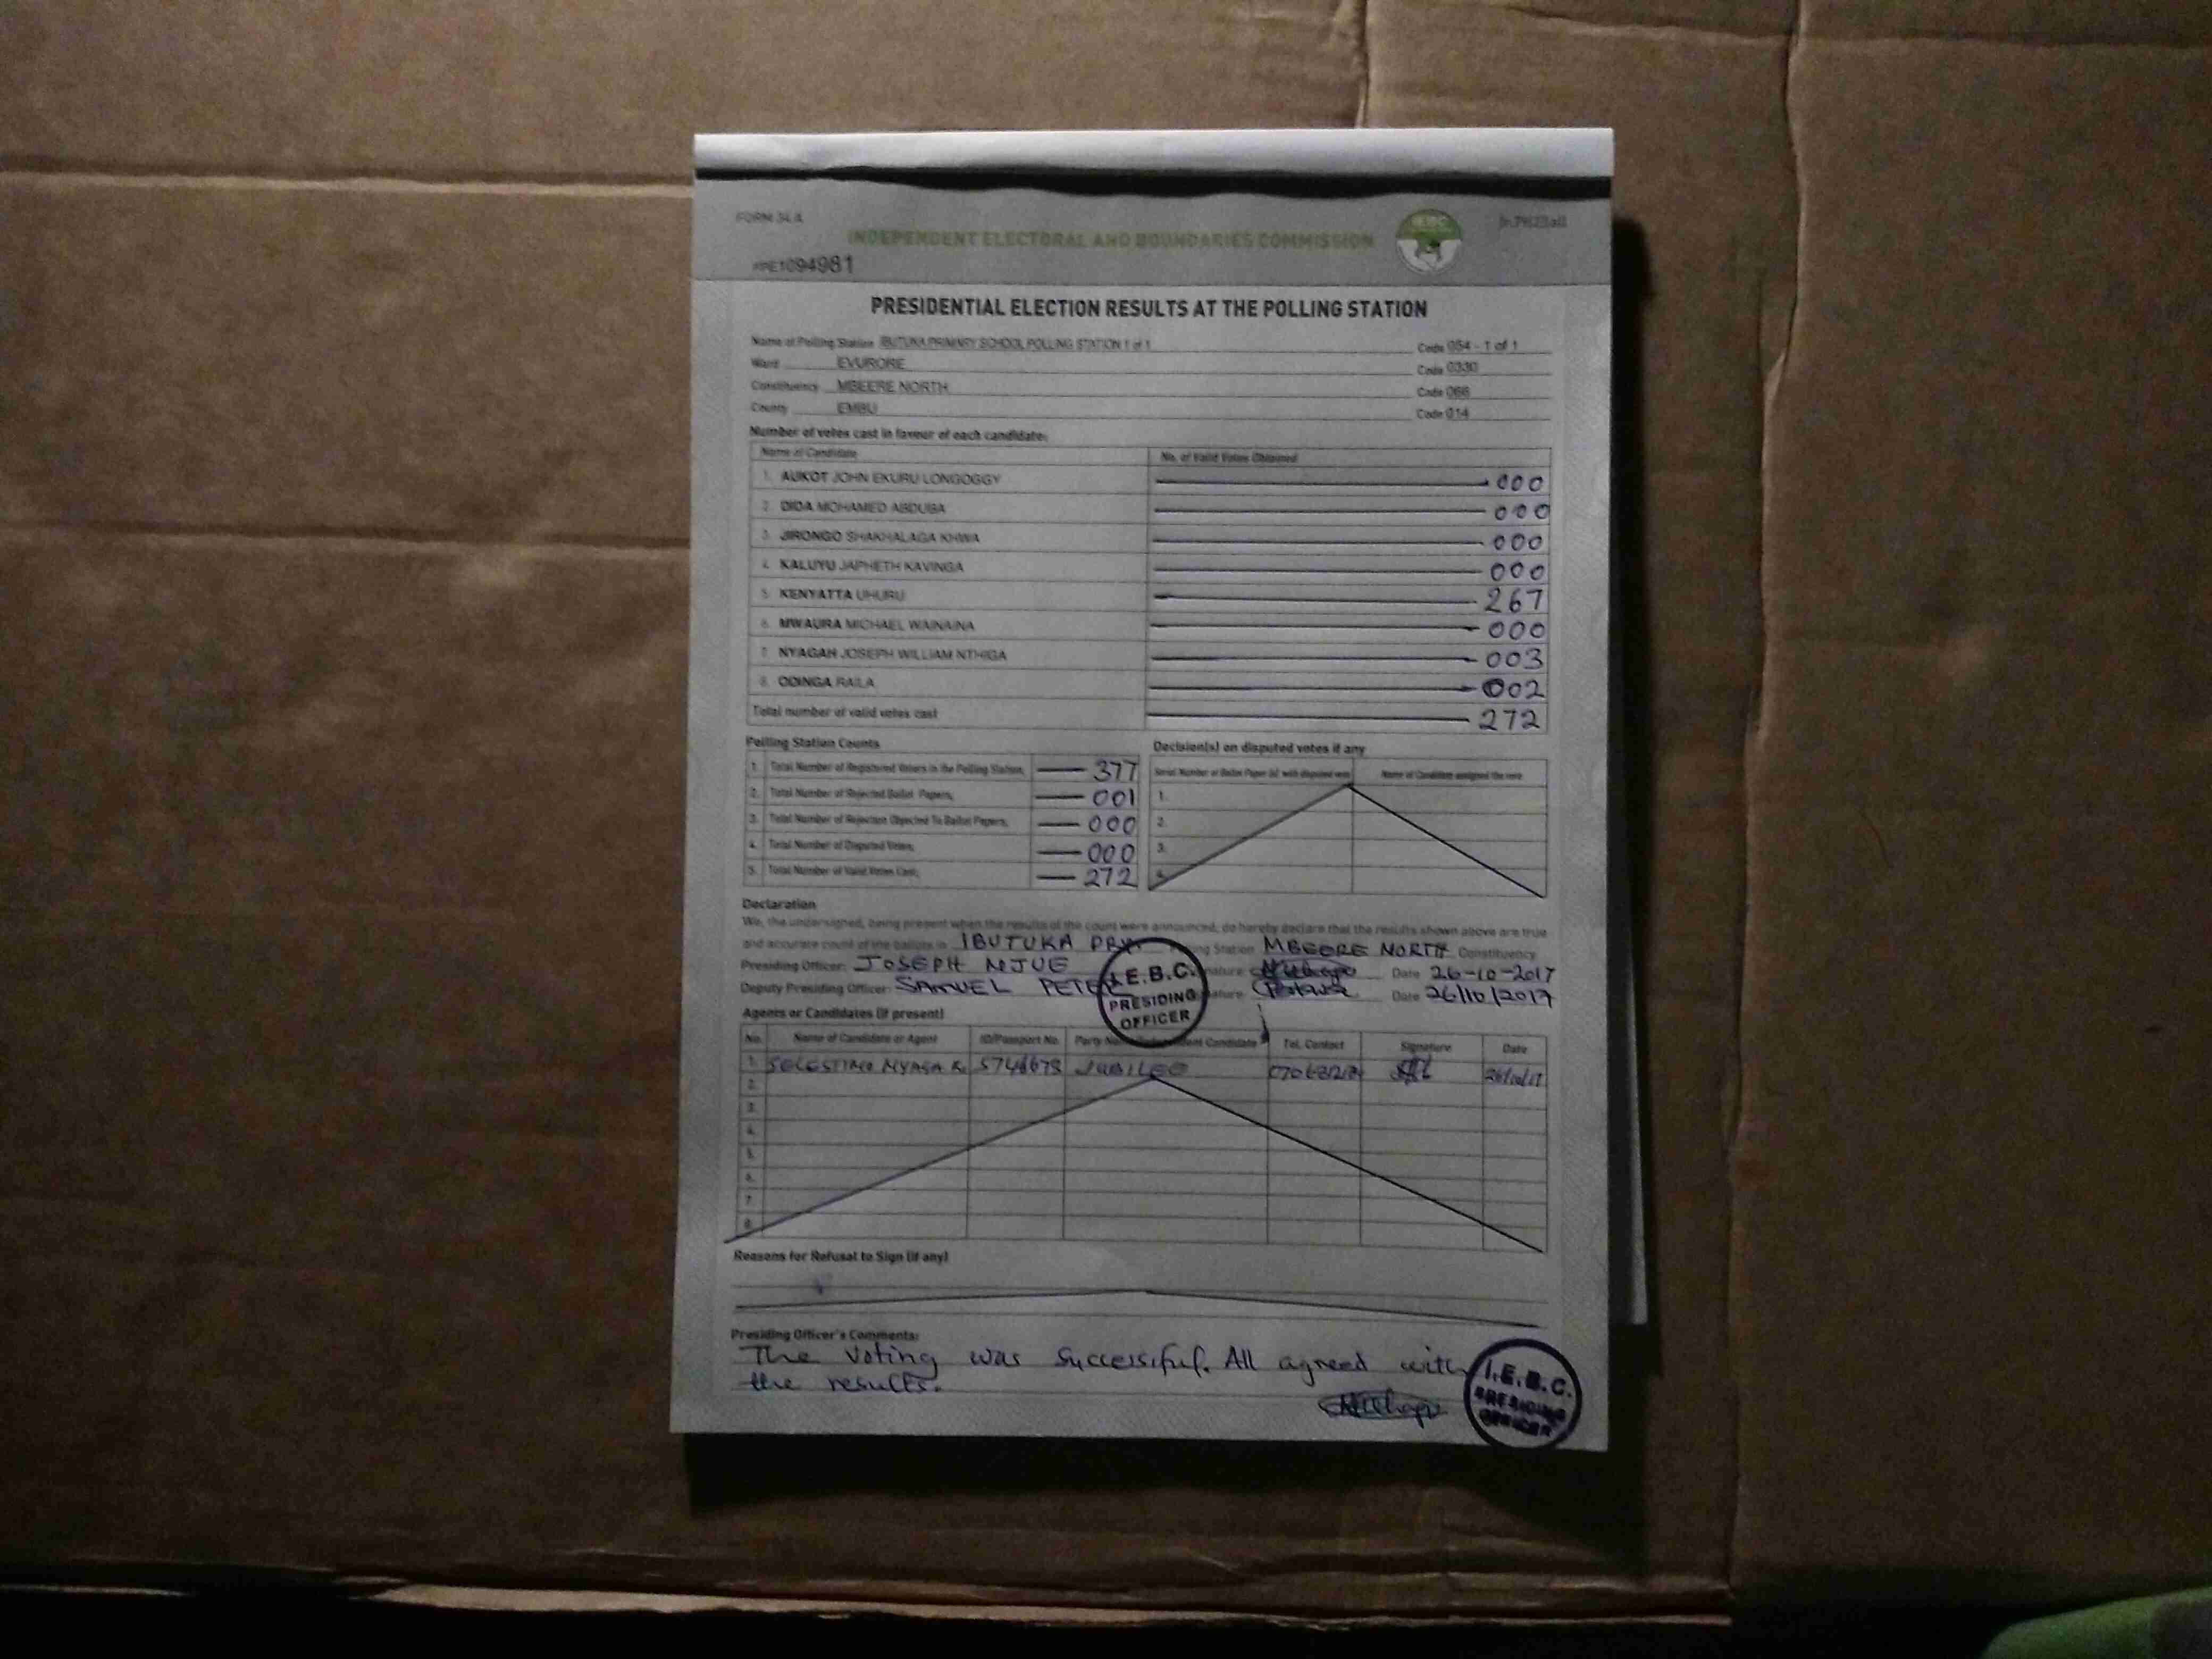 FORM 34 A
INDEPENDENT ELECTORAL AND BOUNDARIES COMMISSION
1094981
PRESIDENTIAL ELECTION RESULTS AT THE POLLING STATION
Name of Polling Station IBUTUKA PRIMARY SCHOOL POLLING STATION 1 of 1 Code 054 - 1 of 1
Ward EVURORE Code 0330
Constituency MBEERE NORTH Code 066
County EMBU Code 014
Number of votes cast in favour of each candidate:
Name of Candidate No. of Valid Votes Obtained
1. AUKOT JOHN EKURU LONGOGGY 000
2. DIDA MOHAMED ABDUBA 000
3. JIRONGO SHAKHALAGA KHWA 000
4. KALUYU JAPHETH KAVINGA 000
5. KENYATTA UHURU 267
6. MWAURA MICHAEL WAINAINA 000
7. NYAGAH JOSEPH WILLIAM NTHIGA 003
8. ODINGA RAILA 002
Total number of valid votes cast 272
Polling Station Counts
1. Total Number of Registered Voters in the Polling Station; 377
2. Total Number of Rejected Ballot Papers; 001
3. Total Number of Rejection Objected To Ballot Papers; 000
4. Total Number of Disputed Votes; 000
5. Total Number of Valid Votes Cast; 272
Decision(s) on disputed votes if any
Serial Number of Ballot Paper (s) with disputed vote Name of Candidate assigned the vote
1.
2.
3.
4.
Declaration
We, the undersigned, being present when the results of the count were announced, do hereby declare that the results shown above are true
and accurate count of the ballots in IBUTUKA PRY. Station MBEERE NORTH Constituency
Presiding Officer: JOSEPH NJUE Date 26-10-2017
Deputy Presiding Officer: SAMUEL PETER Date 26/10/2017
I.E.B.C.
PRESIDING
OFFICER
Agents or Candidates (if present)
No. Name of Candidate or Agent ID/Passport No. Party Candidate Tel. Contact Signature Date
1. JUBILEE 26/10/17
2.
3.
4.
5.
6.
7.
8.
Reasons for Refusal to Sign (if any)
Presiding Officer's Comments:
The voting was successful. All agreed with
the results.
I.E.B.C.
PRESIDING
OFFICER